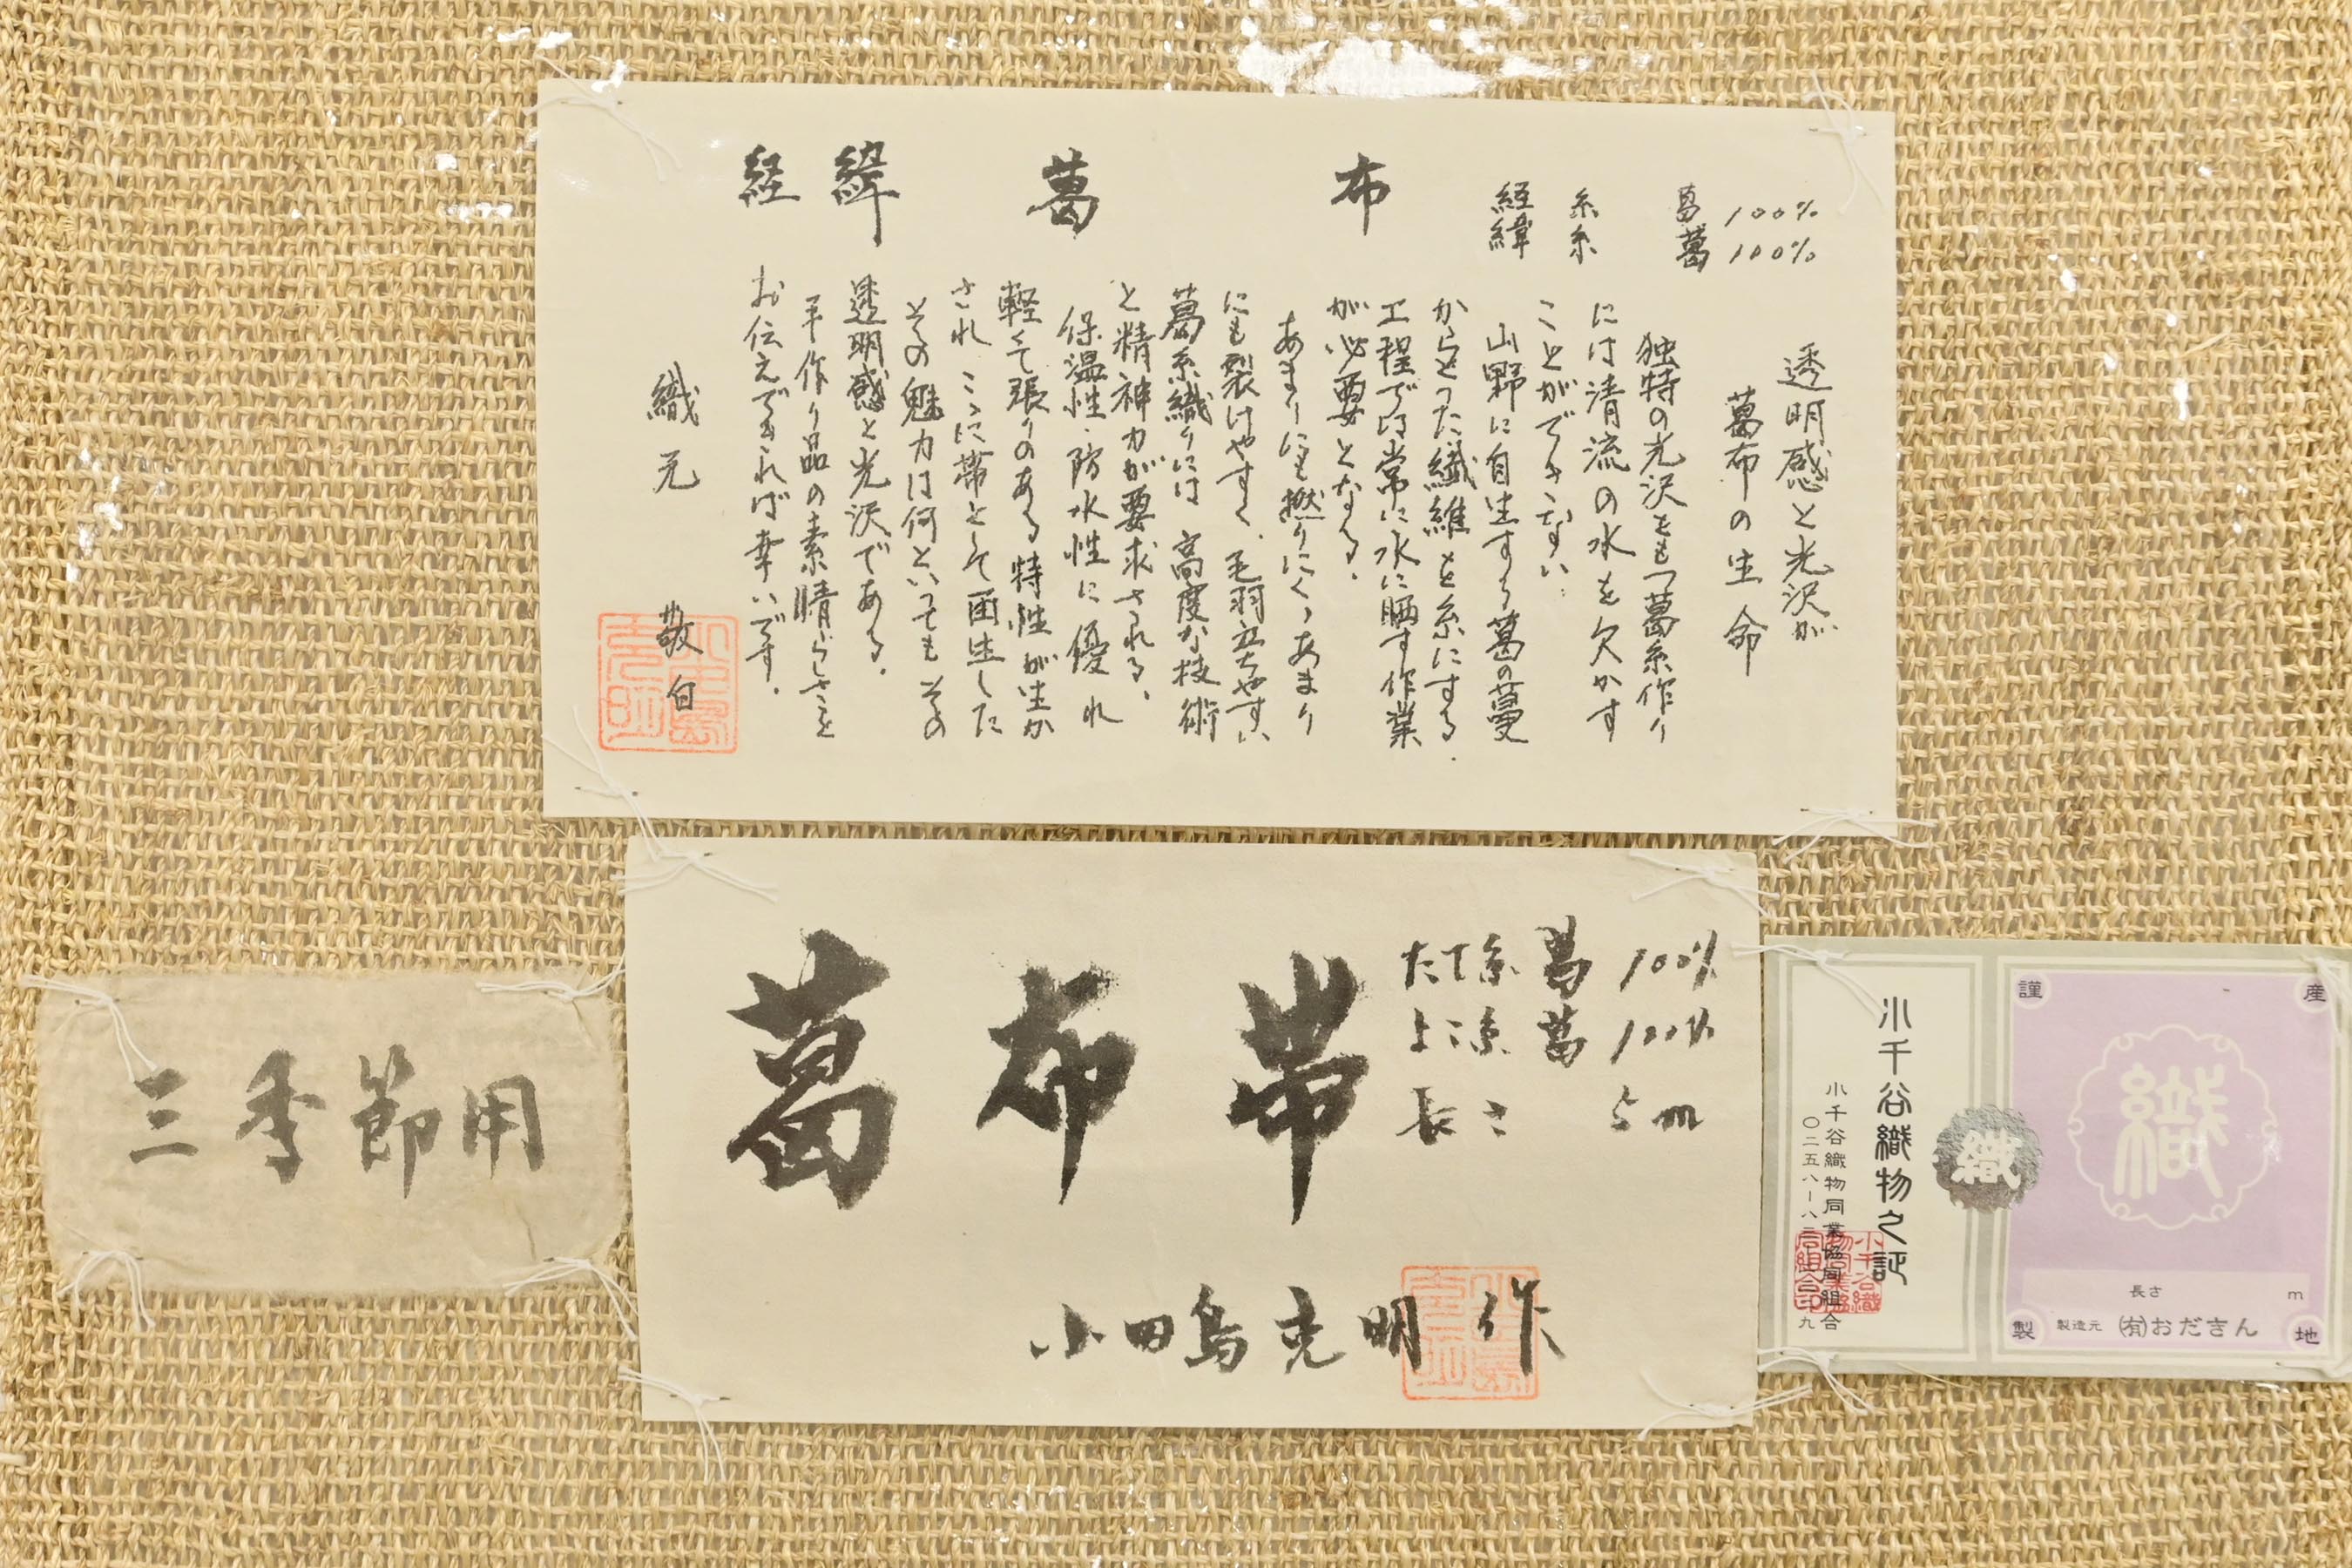 経緯葛布
経糸 葛 100%
緯糸 葛 100%
透明感と光沢が
葛布の生命
独特の光沢をもつ葛糸作り
には清流の水を欠かす
ことができない.
山野に自生する葛の蔓
からとった繊維を糸にする.
工程では常に水に晒す作業
が必要となる.
あまりにも撚りにくゝあまり
にも裂けやすく、毛羽立ちやすい
葛糸織りには高度な技術
と精神力が要求される、
保温性・防水性に優れ
軽くて張りのある特性が生か
され こゝに帯として再生した
その魅力は何といってもその
透明感と光沢である.
手作り品の素晴らしさを
お伝えできれば幸いです.
織元 敬白
葛布帯
たて糸 葛 100%
よこ糸 葛 100%
長さ 5m
小田島克明 作
三季節用
小千谷織物之証
小千谷織物同業協同組合
小千谷織物同業協同組合印
織
謹製
産地
織
長さ m
製造元 ㈲おださん